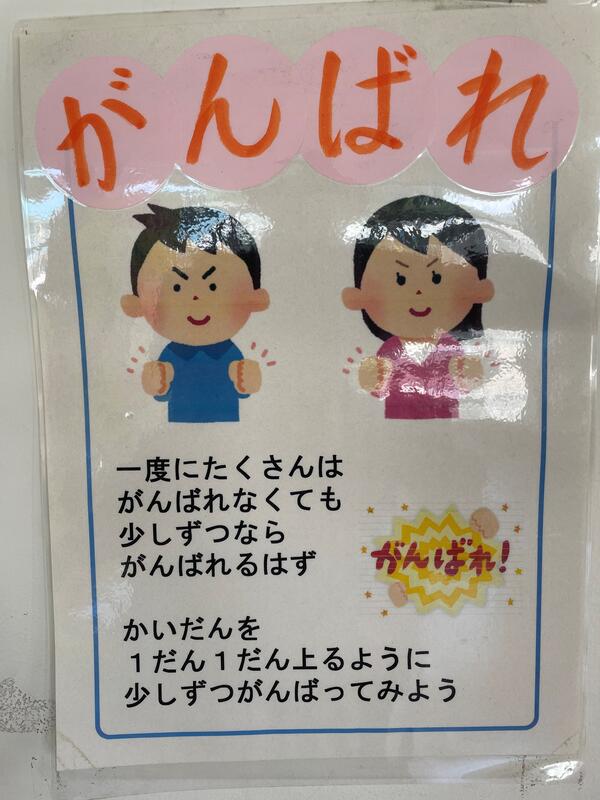 がんばれ
一度にたくさんは
がんばれなくても
少しずつなら
がんばれるはず
がんばれ!
かいだんを
1だん1だん上るように
少しずつがんばってみよう